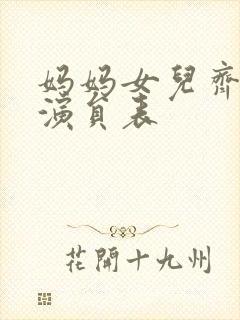 妈妈女兒齊
演員表
花開十九州